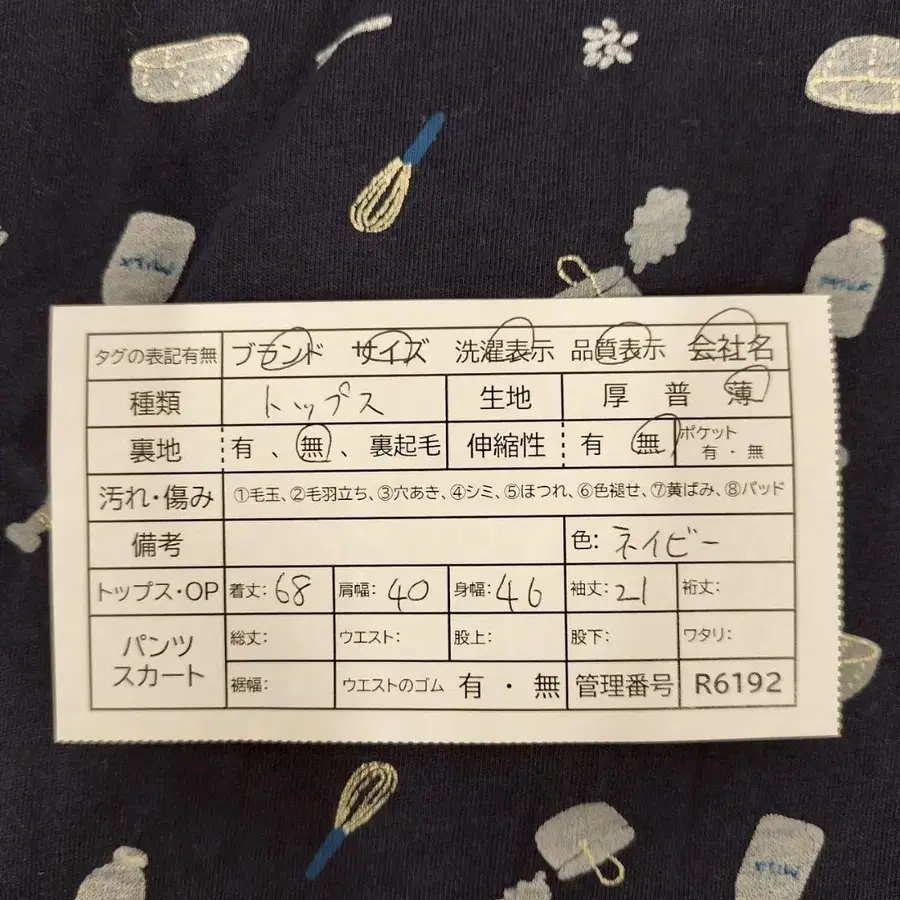 MILK
MILK
タグの表記有無 ブランド サイズ 洗濯表示 品質表示 会社名
種類 トップス 生地 厚 普 薄
裏地 有 、 無 、 裏起毛 伸縮性 有 無 ポケット 有 ・ 無
汚れ・傷み ①毛玉、②毛羽立ち、③穴あき、④シミ、⑤ほつれ、⑥色褪せ、⑦黄ばみ、⑧パッド
備考 色: ネイビー
トップス・OP 着丈: 68 肩幅: 40 身幅: 46 袖丈: 21 裄丈:
パンツ スカート 総丈: ウエスト: 股上: 股下: ワタリ:
裾幅: ウエストのゴム 有 ・ 無 管理番号 R6192
MILK